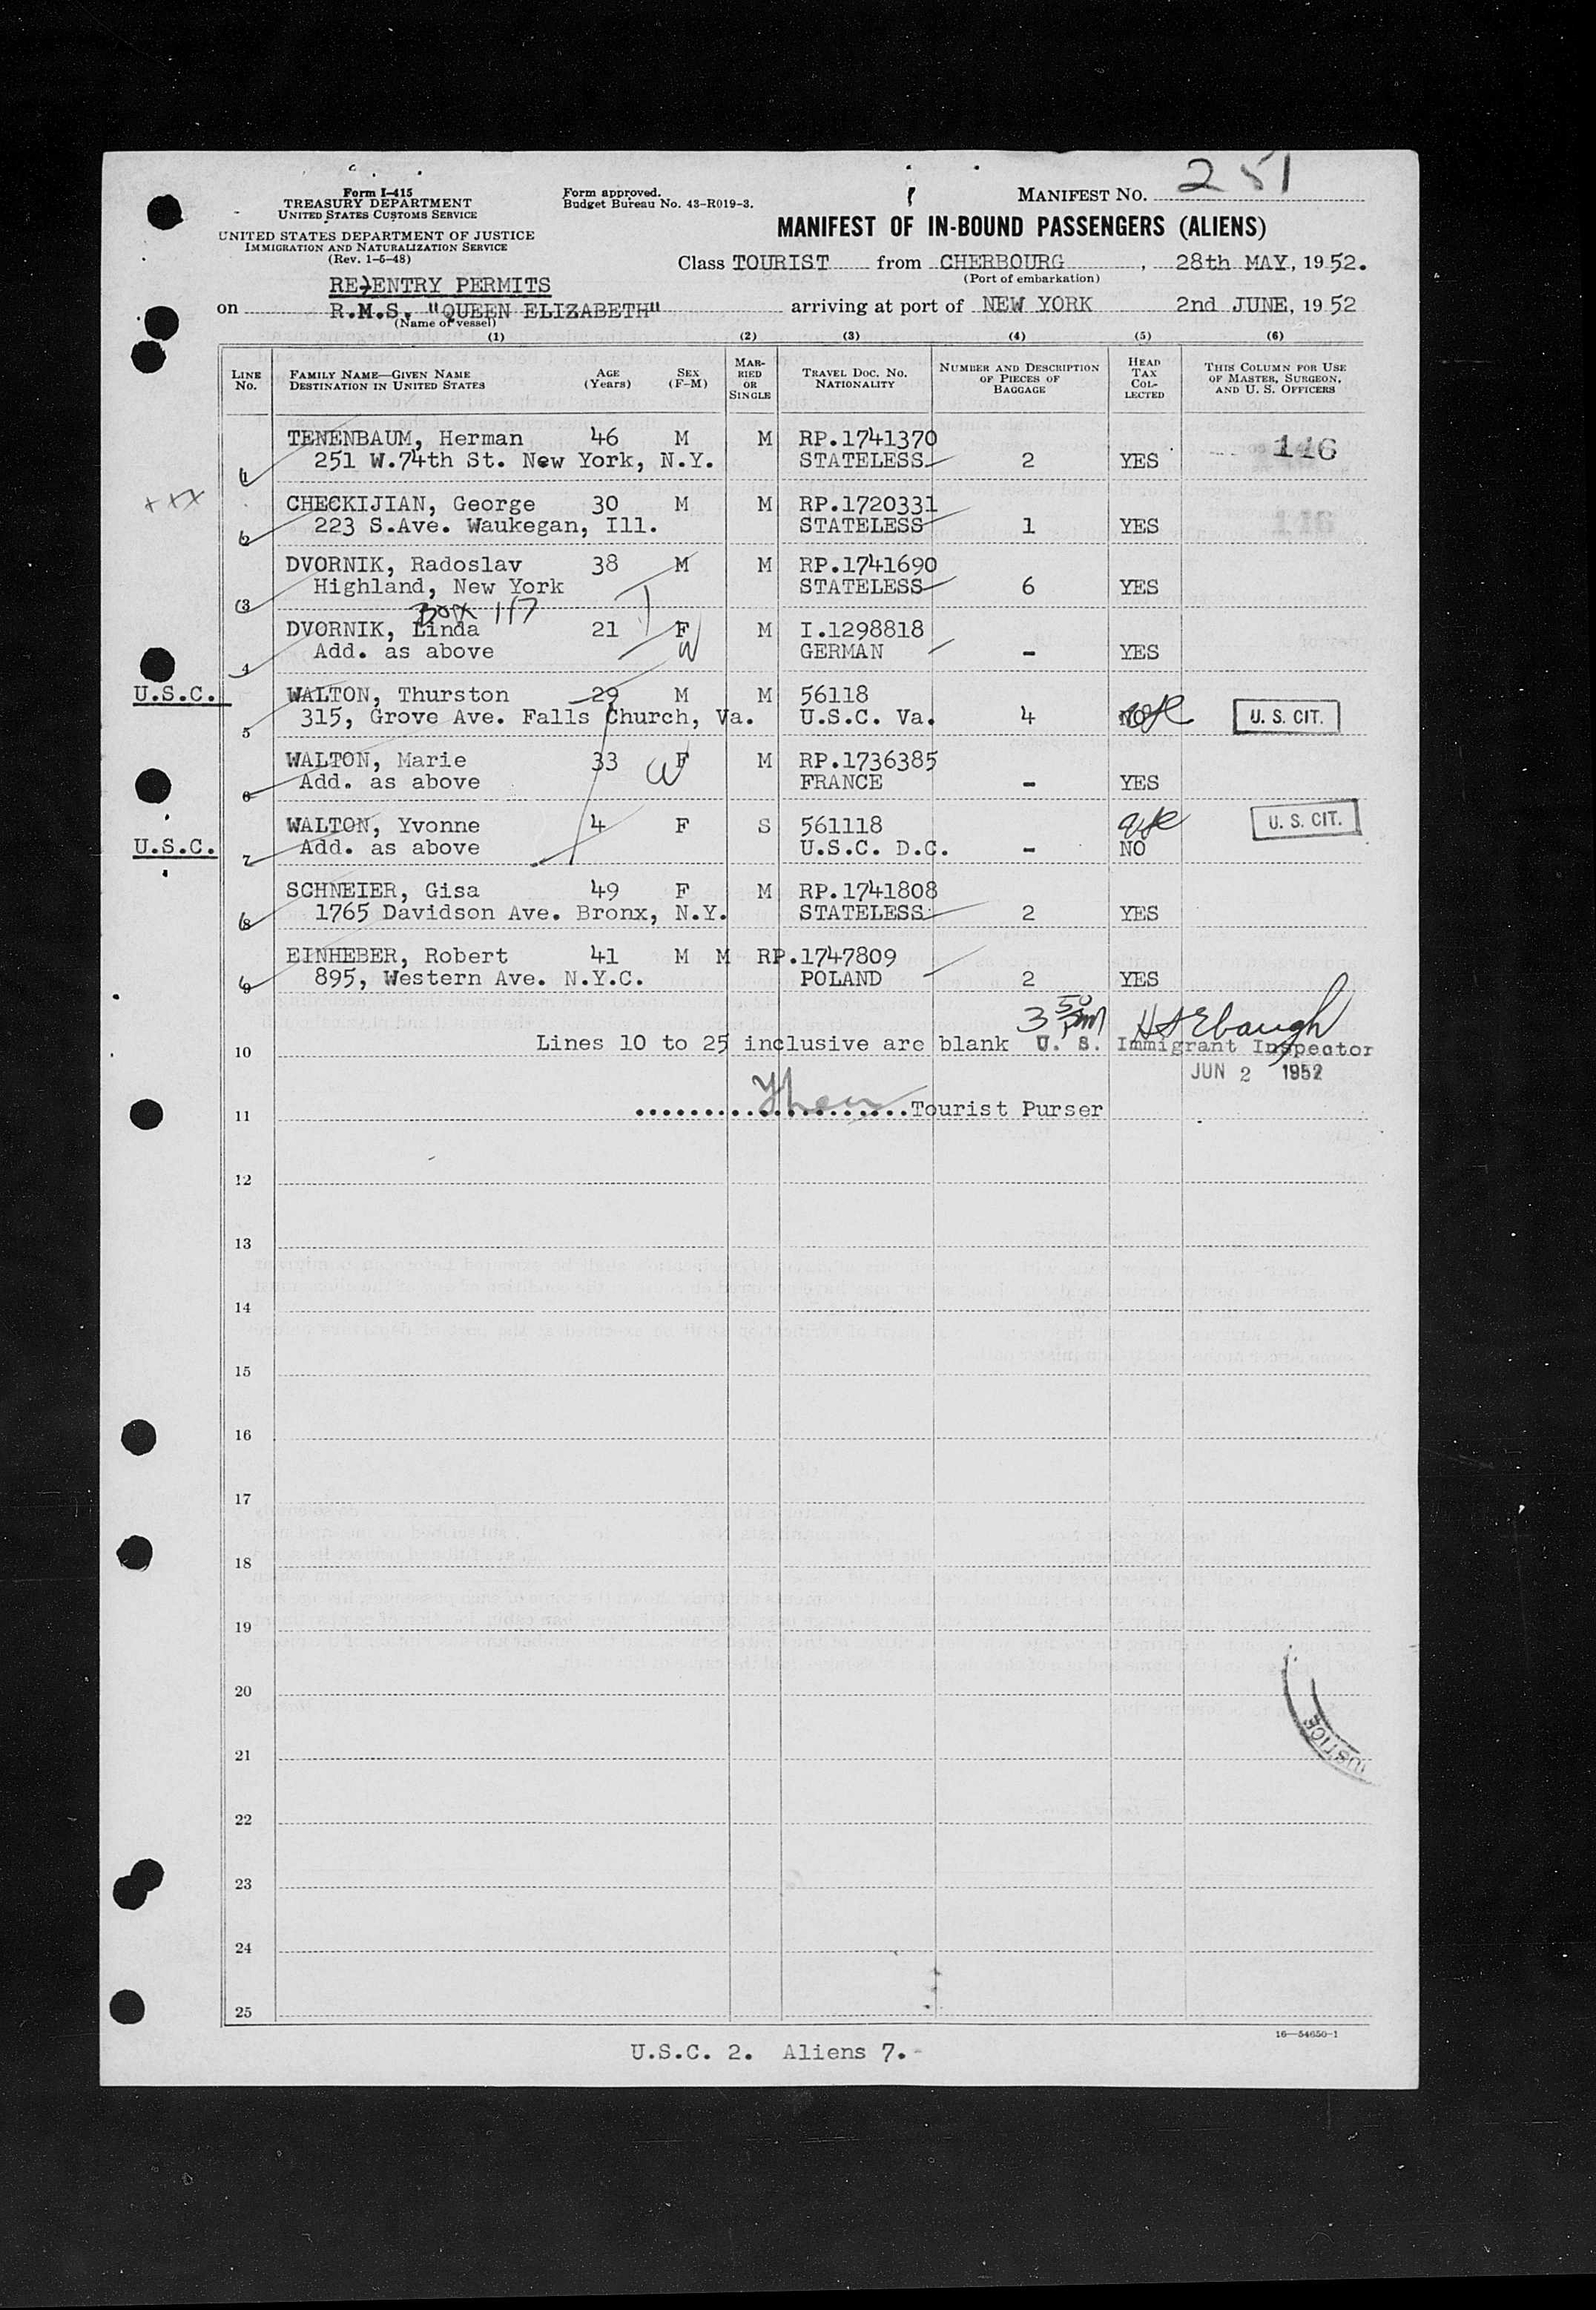 Form I-415
TREASURY DEPARTMENT
UNITED STATES CUSTOMS SERVICE
UNITED STATES DEPARTMENT OF JUSTICE
IMMIGRATION AND NATURALIZATION SERVICE
(Rev. 1-5-48)
Form approved.
Budget Bureau No. 43-R019-3.
MANIFEST NO. 251
MANIFEST OF IN-BOUND PASSENGERS (ALIENS)
Class TOURIST from CHERBOURG, 28th MAY, 1952.
(Port of embarkation)
RE-ENTRY PERMITS
on R.M.S. "QUEEN ELIZABETH" arriving at port of NEW YORK 2nd JUNE, 1952
(Name of vessel)
(1) (2) (3) (4) (5) (6)
LINE NO. FAMILY NAME—GIVEN NAME DESTINATION IN UNITED STATES AGE (Years) SEX (F-M) MARRIED OR SINGLE TRAVEL DOC. NO. NATIONALITY NUMBER AND DESCRIPTION OF PIECES OF BAGGAGE HEAD TAX COLLECTED THIS COLUMN FOR USE OF MASTER, SURGEON, AND U. S. OFFICERS
TENENBAUM, Herman 46 M M RP.1741370 116
1 251 W.74th St. New York, N.Y. STATELESS 2 YES
+xx CHECKIJIAN, George 30 M M RP.1720331
2 223 S.Ave. Waukegan, Ill. STATELESS 1 YES 116
DVORNIK, Radoslav 38 M M RP.1741690
Highland, New York STATELESS 6 YES
3 Box 117
DVORNIK, Linda 21 F M I.1298818
4 Add. as above W GERMAN - YES
U.S.C. WALTON, Thurston 29 M M 56118
5 315, Grove Ave. Falls Church, Va. U.S.C. Va. 4 NO U. S. CIT.
WALTON, Marie 33 F M RP.1736385
6 Add. as above W FRANCE - YES
WALTON, Yvonne 4 F S 561118 U. S. CIT.
U.S.C. 7 Add. as above U.S.C. D.C. - NO
SCHNEIER, Gisa 49 F M RP.1741808
8 1765 Davidson Ave. Bronx, N.Y. STATELESS 2 YES
EINHEBER, Robert 41 M M RP.1747809
9 895, Western Ave. N.Y.C. POLAND 2 YES
3 50 PM
10 Lines 10 to 25 inclusive are blank U. S. Immigrant Inspector
JUN 2 1952
11 ....................Tourist Purser
12
13
14
15
16
17
18
19
20
21
USTICE
22
23
24
25
16—54650-1
U.S.C. 2. Aliens 7.-